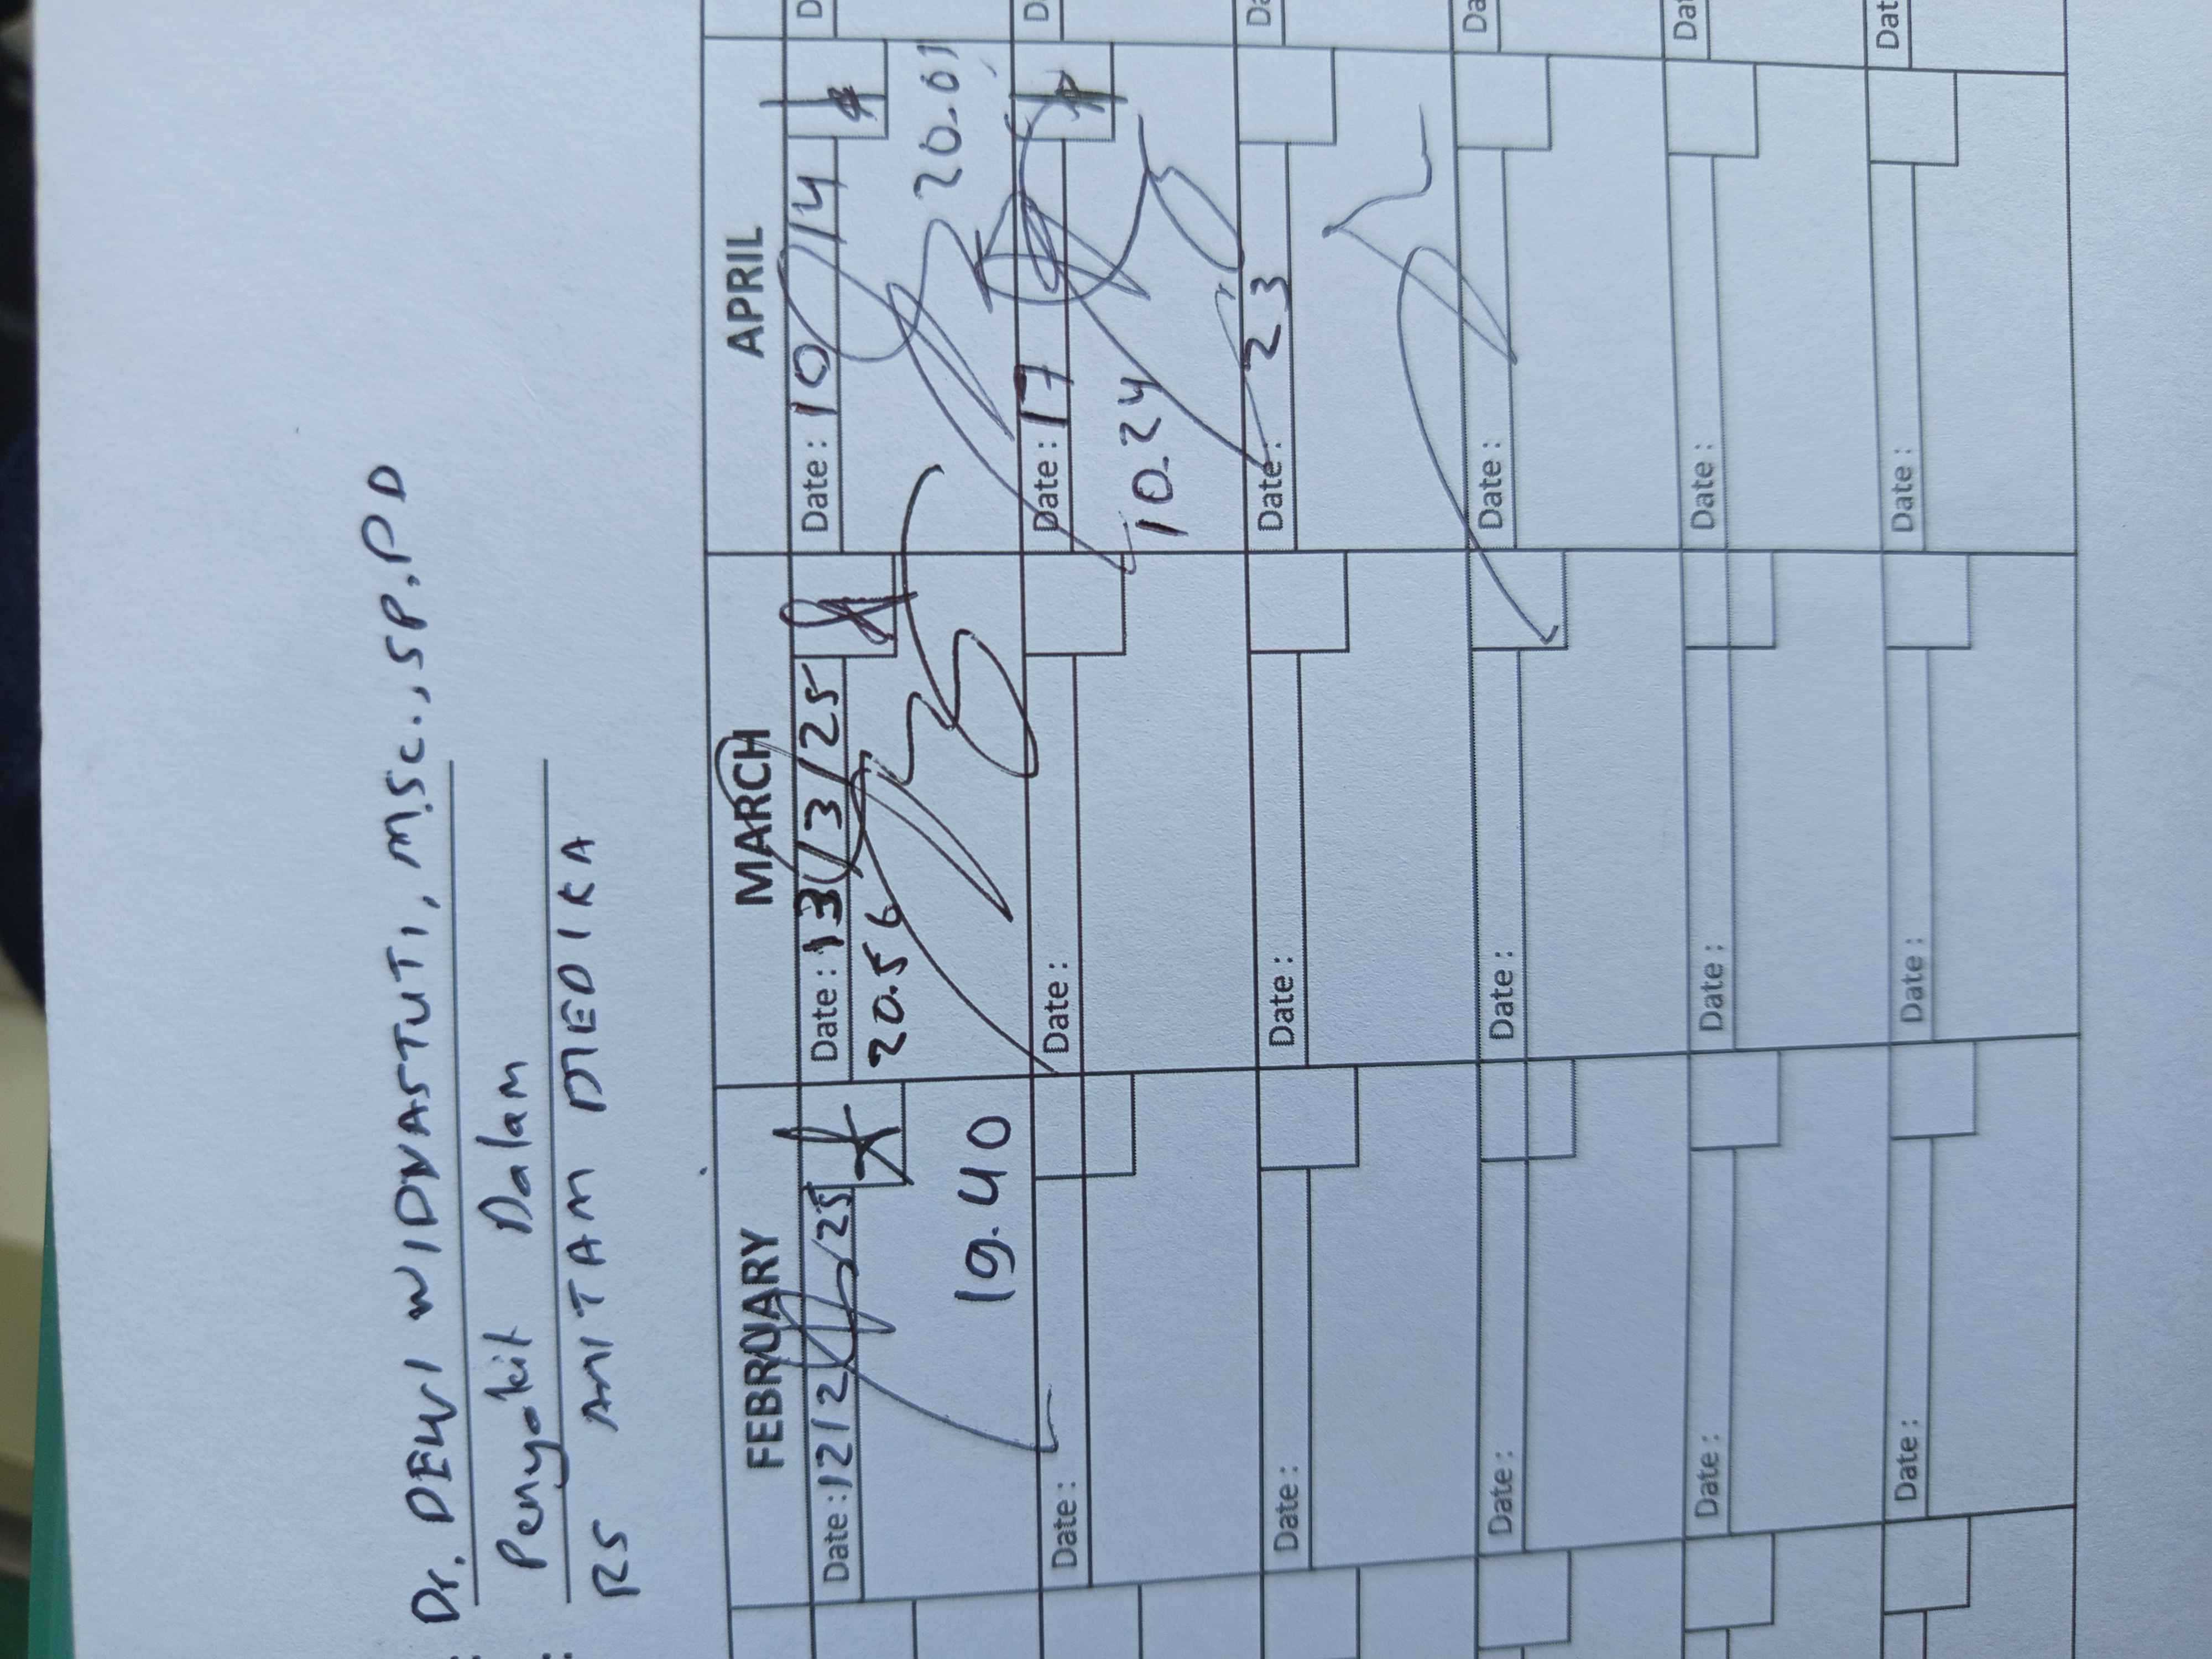 : Dr. DEWI WIDNASTUTI, M.Sc., SP.PD
: Penyakit Dalam
RS MITAM MEDIKA
FEBRUARY MARCH APRIL
Date : 12/2/25 Date : 13/3/25 Date : 10/4
19.40 20.56 20.01
Date : Date : Date : 17
10.24
Date : Date : Date : 23
Date : Date : Date :
Date : Date : Date :
Date : Date : Date :